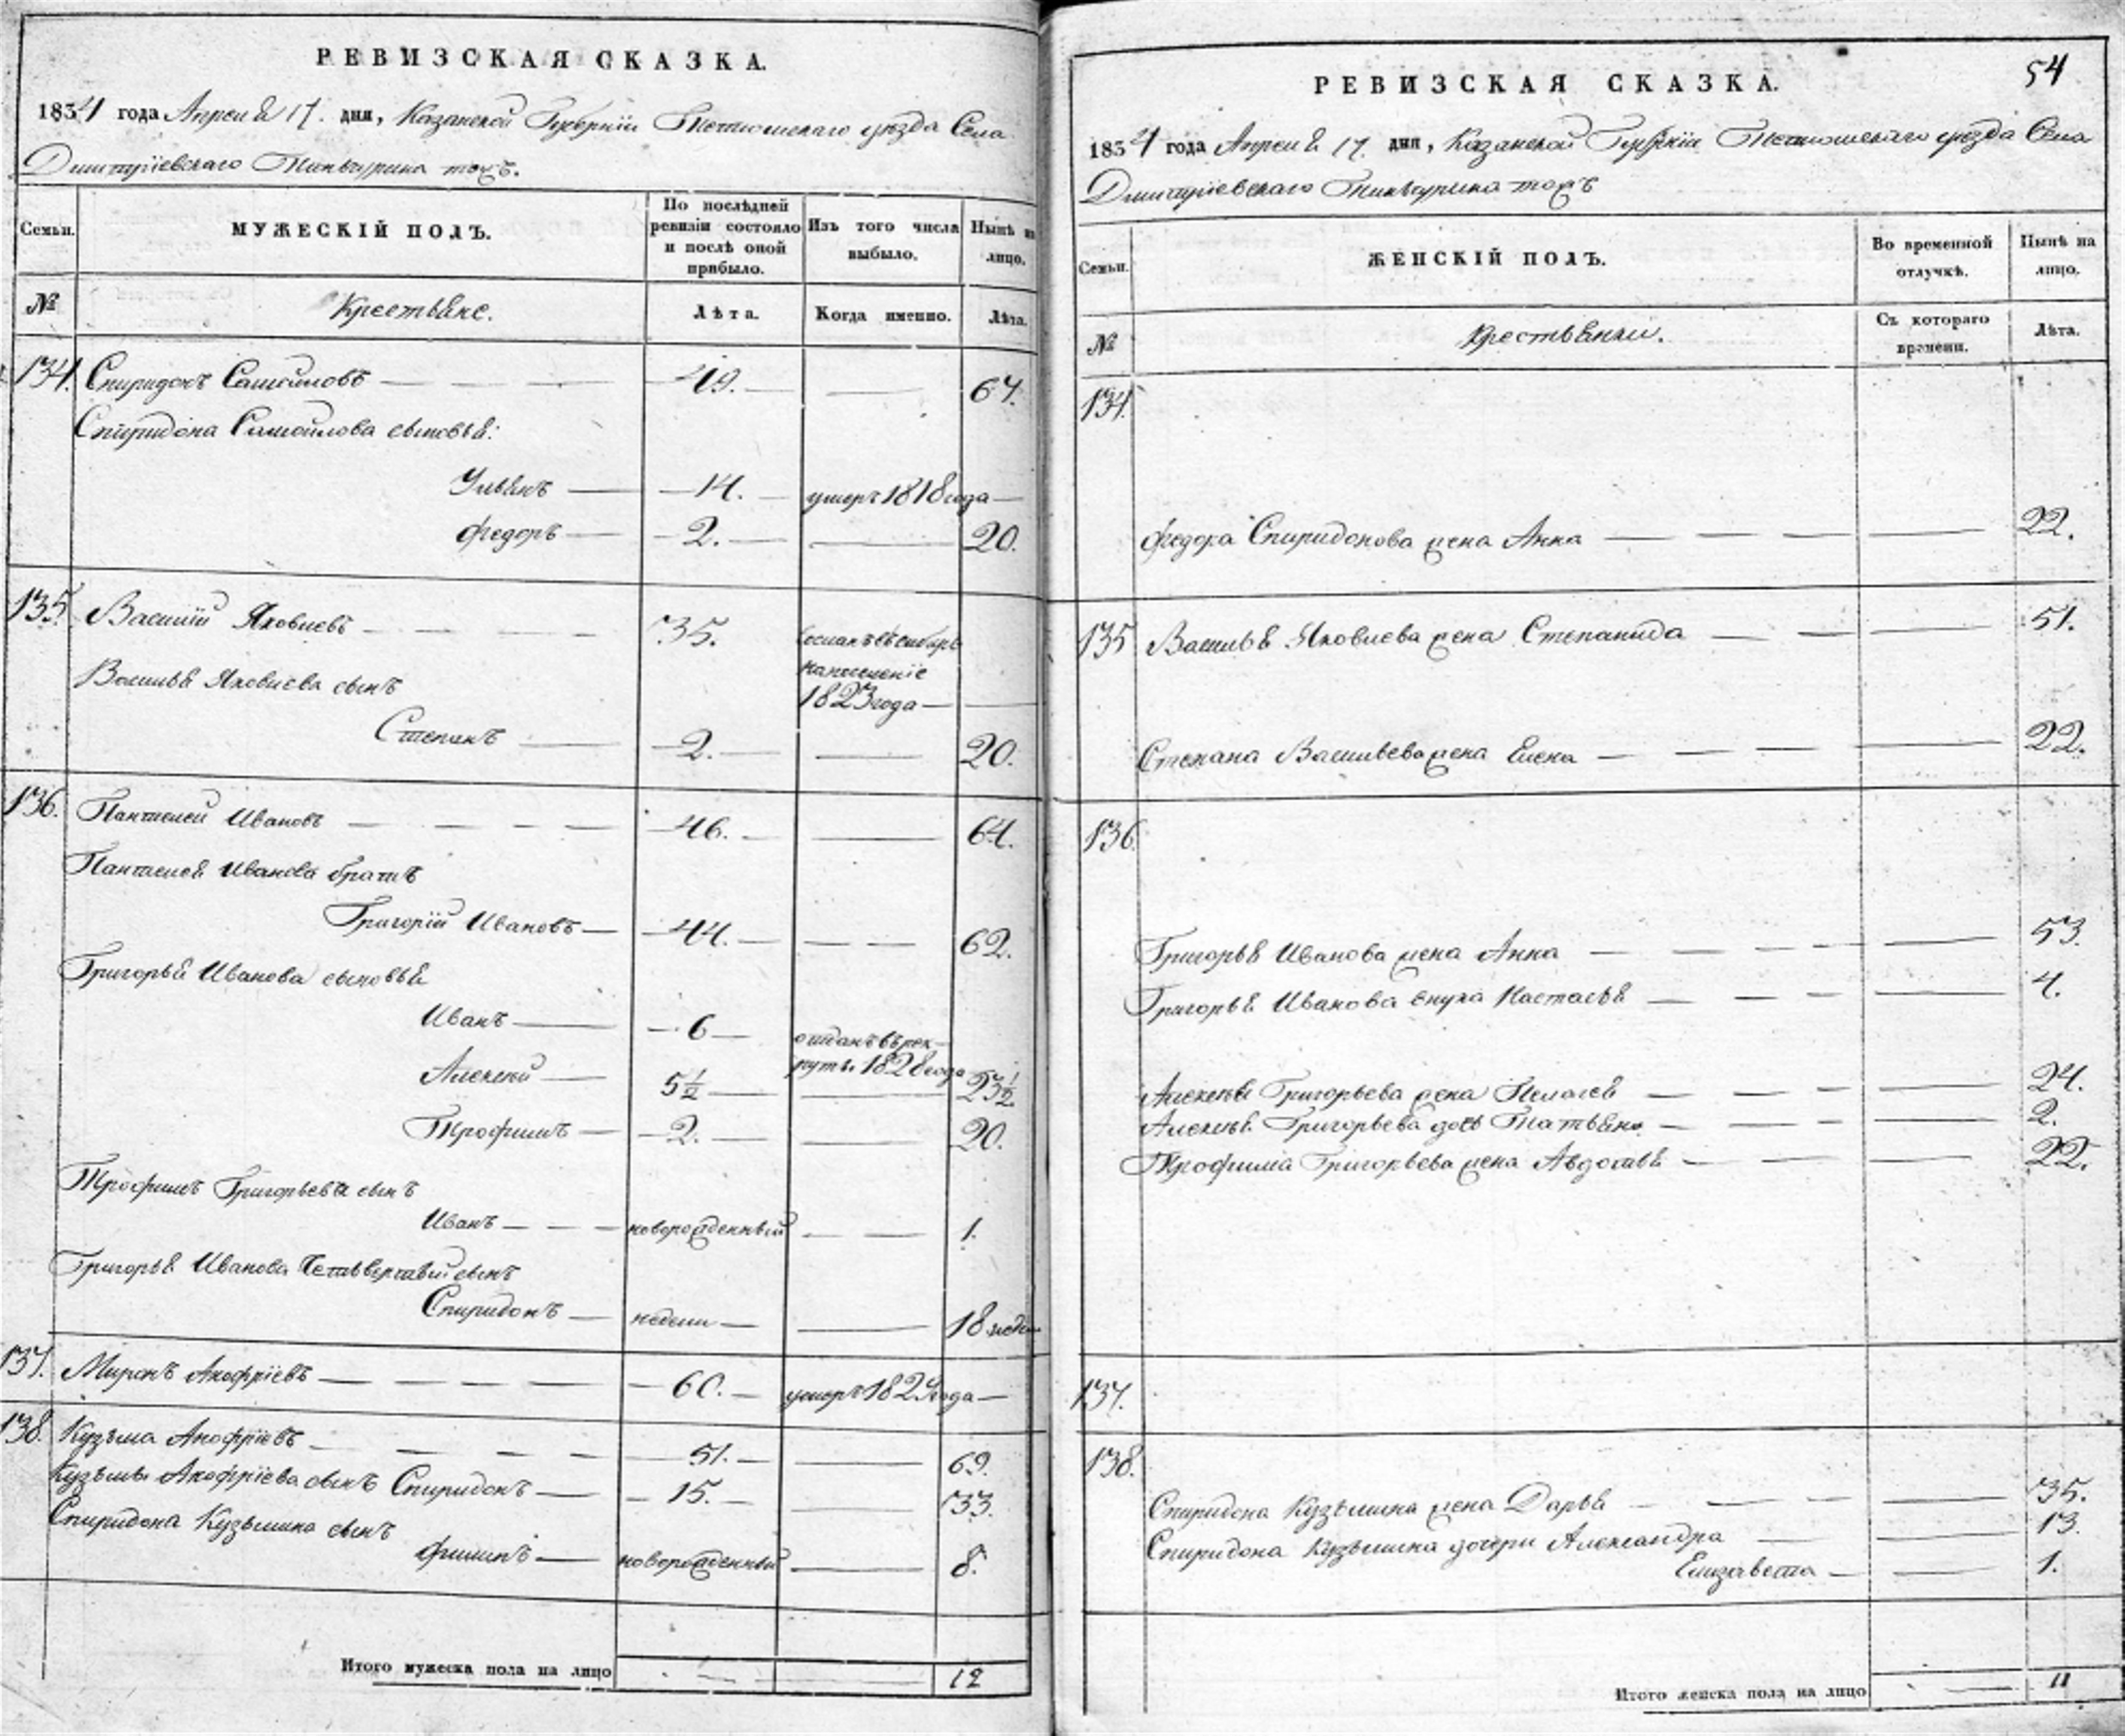 РЕВИЗСКАЯ СКАЗКА.
1834 года Апреля 17. дня, Казанской Губернiи Тетюшскаго уезда Села
Дмитрiевскаго тожъ.
Семьи.
МУЖЕСКIЙ ПОЛЪ.
По послѣдней ревизiи состояло и послѣ оной прибыло.
Изъ того числа выбыло.
Нынѣ на лицо.
№
Крестьяне.
Лѣта.
Когда именно.
Лѣта.
134. Спиридонъ Самойловъ 49. 67.
Спиридона Самойлова сыновья:
Ульянъ 14. умеръ 1818 года
Федоръ 2. 20.
135. Василiй Яковлевъ 35. сосланъ въ сибирь
на поселенiе
1823 года
Василья Яковлева сынъ
Степанъ 2. 20.
136. Пантелей Ивановъ 46. 64.
Пантелея Иванова братъ
Григорiй Ивановъ 44. 62.
Григорья Иванова сыновья
Иванъ 6 отданъ въ рек-
руты 1828 года
Алексей 5 1/2 23 1/2.
Трофимъ 2. 20.
Трофимъ Григорьева сынъ
Иванъ новорожденный 1.
Григорья Иванова Четьвертый сынъ
Спиридонъ недели 18 недель
137. Миронъ Анофрiевъ 60. умеръ 1829 года
138. Кузьма Анофрiевъ 51. 69.
Кузьмы Анофрiева сынъ Спиридонъ 15. 33.
Спиридона Кузьмина сынъ
Филипъ новорожденный 8.
Итого мужеска пола на лицо 12
54
РЕВИЗСКАЯ СКАЗКА.
1834 года Апреля 17. дня, Казанской Губернiи Тетюшскаго уезда Села
Дмитрiевскаго тожъ
Семьи.
ЖЕНСКIЙ ПОЛЪ.
Во временной отлучкѣ.
Нынѣ на лицо.
№
Крестьянки.
Съ котораго времени.
Лѣта.
134.
Федора Спиридонова жена Анна 22.
135 Василья Яковлева жена Степанида 51.
Степана Васильева жена Елена 22.
136.
Григорья Иванова жена Анна 53.
Григорья Иванова внука Настасья 4.
Алексея Григорьева жена Пелагея 24.
Алексея Григорьева дочь Татьяна 2.
Трофима Григорьева жена Авдотья 22.
137.
138.
Спиридона Кузьмина жена Дарья 35.
Спиридона Кузьмина дочери Александра 13.
Елизавета 1.
Итого женска пола на лицо 11